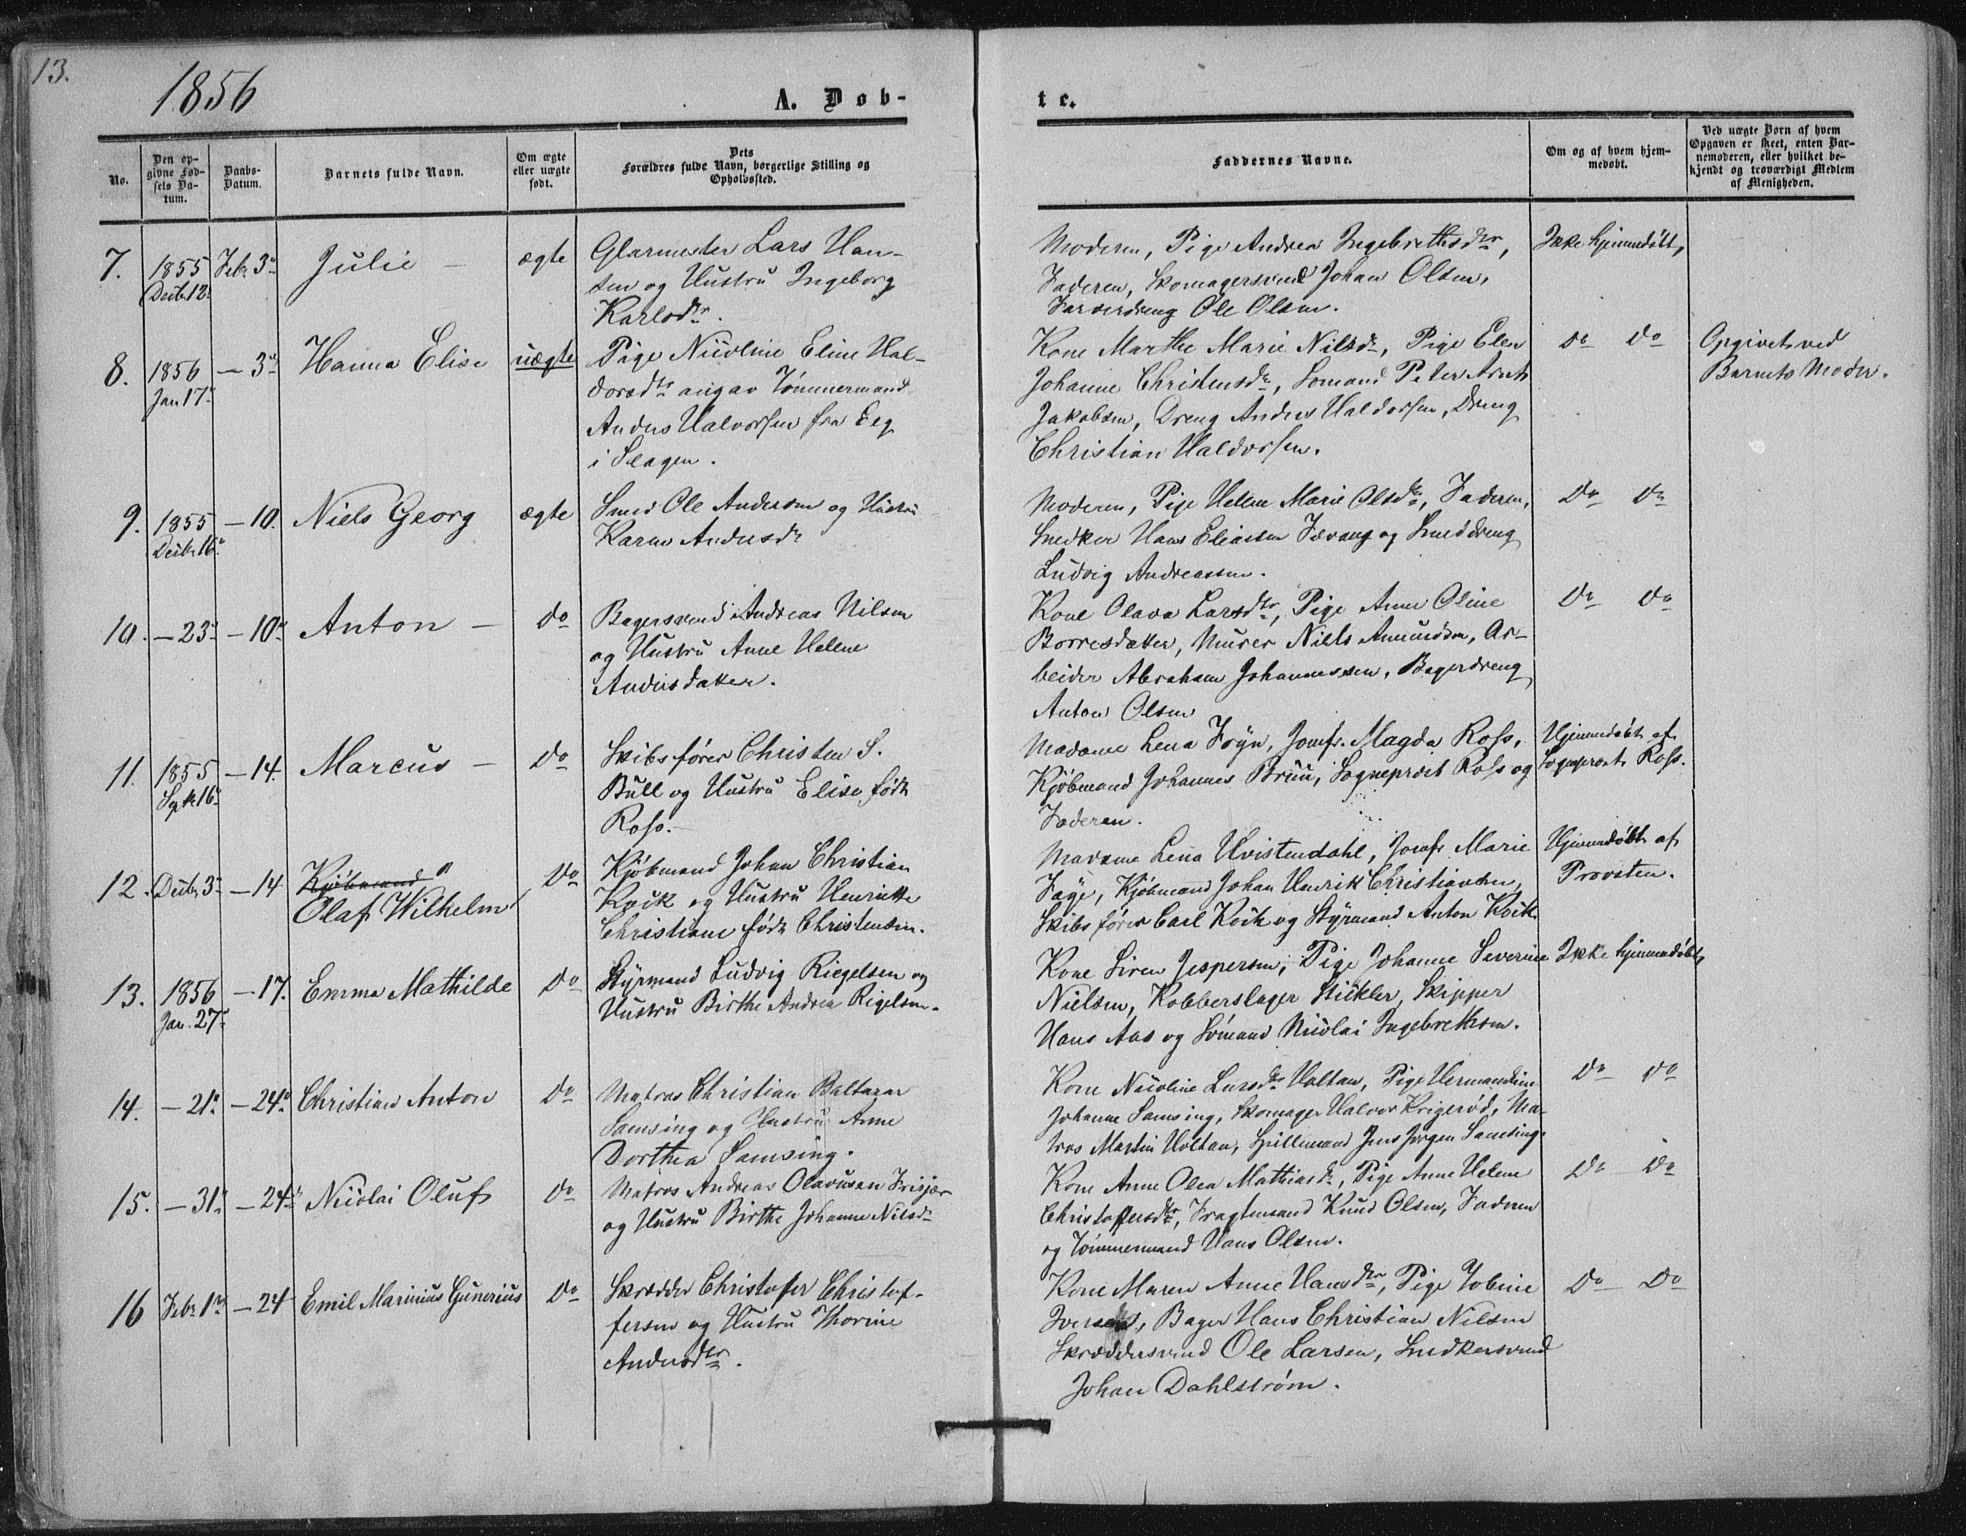 13.
1856
A. Døb-
te.
No.
Den op-
givne Fød-
sels Da-
tum.
Daabs-
Datum.
Barnets fulde Navn.
Om ægte
eller uægte
født.
Dets
Forældres fulde Navn, borgerlige Stilling og
Opholdssted.
Faddernes Navne.
Om og af hvem hjem-
medøbt.
Ved uægte Børn af hvem
Opgaven er skeet, enten Bar-
nemoderen, eller hvilket be-
kjendt og troværdigt Medlem
af Menigheden.
7. 1855 Decbr 12 Febr. 3 Julie – ægte
Glarmester Lars Han-
sen og Hustru Ingeborg
Karlsdr.
Moderen, Pige Andrea Ingebrethsdtr,
Faderen, Skomagersvend Johan Olsen,
Farverdreng Ole Olsen.
Ikke hjemmedøbt
8. 1856 Jan. 17 – 3 Hanna Elise uægte
Pige Nicoline Eline Hal-
dorsdtr angav Tømmermand
Anders Halvorsen fra Eeg
i Slagen.
Kone Marthe Marie Nilsdr, Pige Elen
Johanne Christensdr, Sømand Peter Arnt
Jakobsen, Dreng Anders Haldorsen, Dreng
Christian Haldorsen.
Do Do
Opgivet ved
Barnets Moder.
9. 1855 Decbr 16 – 10. Niels Georg ægte
Smed Ole Andersen og Hustru
Karen Andersdr
Moderen, Pige Helene Marie Olsdr, Faderen,
Snedker Hans Eliassen Jævang og Smeddreng
Ludvig Andreassen.
Do Do
10. – 23 – 10 Anton – Do
Bagersvend Andreas Nilsen
og Hustru Anne Helene
Andersdatter.
Kone Olava Larsdtr, Pige Anne Oline
Borresdatter, Murer Niels Amundsen, Ar-
beider Abraham Johannessen, Bagerdreng
Anton Olsen
Do Do
11. 1855 Septbr 16 – 14. Marcus – Do
Skibsfører Christen S.
Bull og Hustru Elise født
Ross.
Madame Lena Foyn, Jomfr. Magda Ross,
Kjøbmand Johannes Bruu, Sogneprost Ross og
Faderen.
Hjemmedøbt af
Sogneprost Ross.
12. Decbr 3 – 14 Kjøbmand
Olaf Wilhelm Do
Kjøbmand Johan Christian
Kvik og Hustru Henriette
Christiane født Christensen.
Madame Lena Hvistendahl, Jomfr Marie
Faye, Kjøbmand Johan Henrik Christiansen,
Skibsfører Carl Kvik og Styrmand Anton Kvik.
Hjemmedøbt af
Provsten.
13. 1856 Jan. 27 – 17. Emma Mathilde Do
Styrmand Ludvig Riegelsen og
Hustru Birthe Andrea Rigelsen.
Kone Siren Jespersen, Pige Johanne Severine
Nielsen, Kobberslager Stickler, Skipper
Hans Aas og Sømand Nicolai Ingebrethsen.
Ikke hjemmedøbt
14. – 21 – 24 Christian Anton Do
Matros Christian Baltazar
Samsing og Hustru Anne
Dorthea Samsing.
Kone Nicoline Larsdtr Holtan, Pige Hermandine
Johanne Samsing, Skomager Halvor Krigerød, Ma-
tros Martin Holtan, Spillemand Jens Jørgen Samsing.
Do Do
15. – 31 – 24 Nicolai Oluf Do
Matros Andreas Olavusen Frisjær
og Hustru Birthe Johanne Nilsdr
Kone Anne Olea Mathiasdr, Pige Anne Helene
Christoffersdtr, Fragtemand Knud Olsen, Faderen
og Tømmermand Hans Olsen.
Do Do
16 Febr 1 – 24 Emil Marinius Gunerius Do
Skrædder Christoffer Christof-
fersen og Hustru Thorine
Andersdtr.
Kone Maren Anne Hansdtr, Pige Jobine
Iversen, Bager Hans Christian Nilsen
Skræddersvend Ole Larsen, Snedkersvend
Johan Dahlstrøm.
Do Do